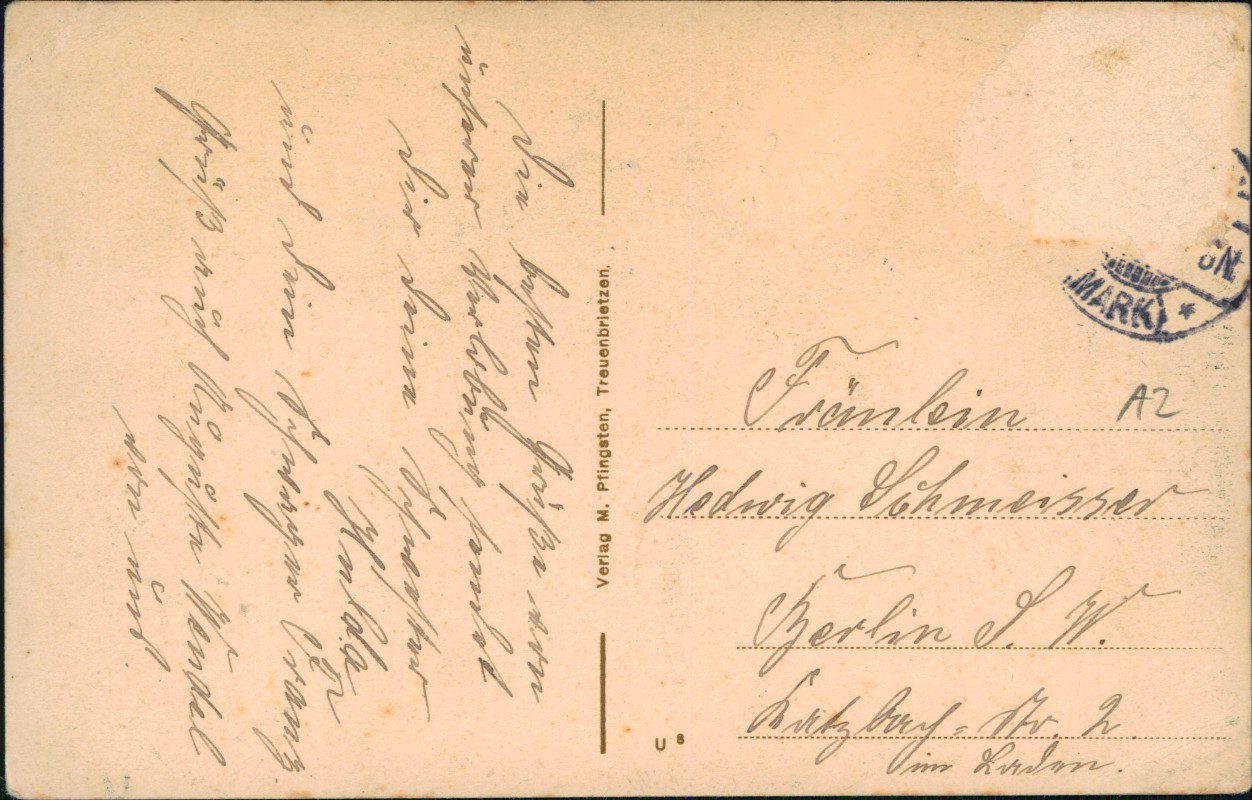 Die besten Grüße von
unserer Verlobung sendet
Dir Deine Schwester
Hulda
und Dein Schwager Franz
Grüß auch Auguste Wendel
von uns.
Verlag M. Pfingsten, Treuenbrietzen.
MARK) *
A2
Fräulein
Hedwig Schmeisser
Berlin S. W.
Katzbach-Str. 2.
im Laden.
U 8